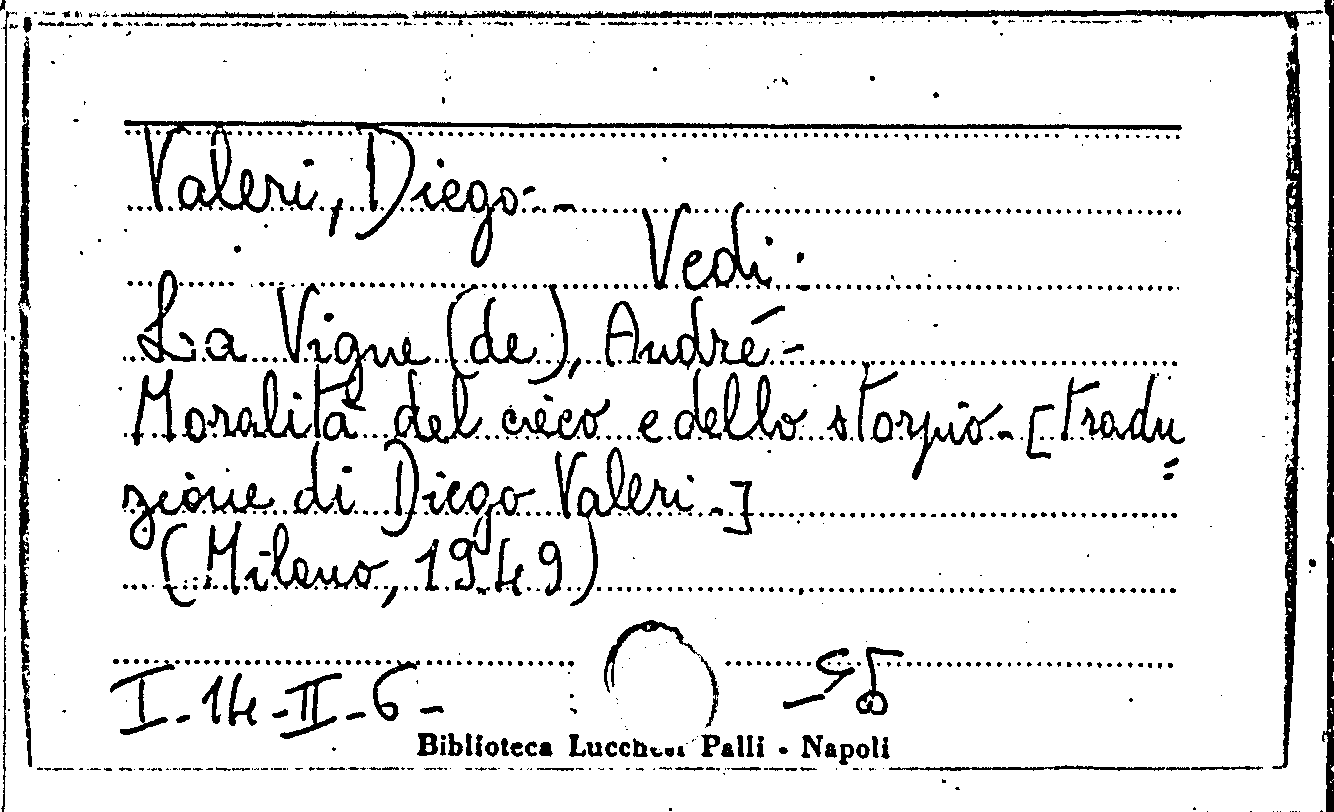 Valeri, Diego.-
Vedi:
La Vigne (de), André-
Moralità del cieco e dello storpio-[tradu
zione di Diego Valeri.]
(Milano, 1949)
I-14-II-6-
Biblioteca Lucchesi Palli - Napoli